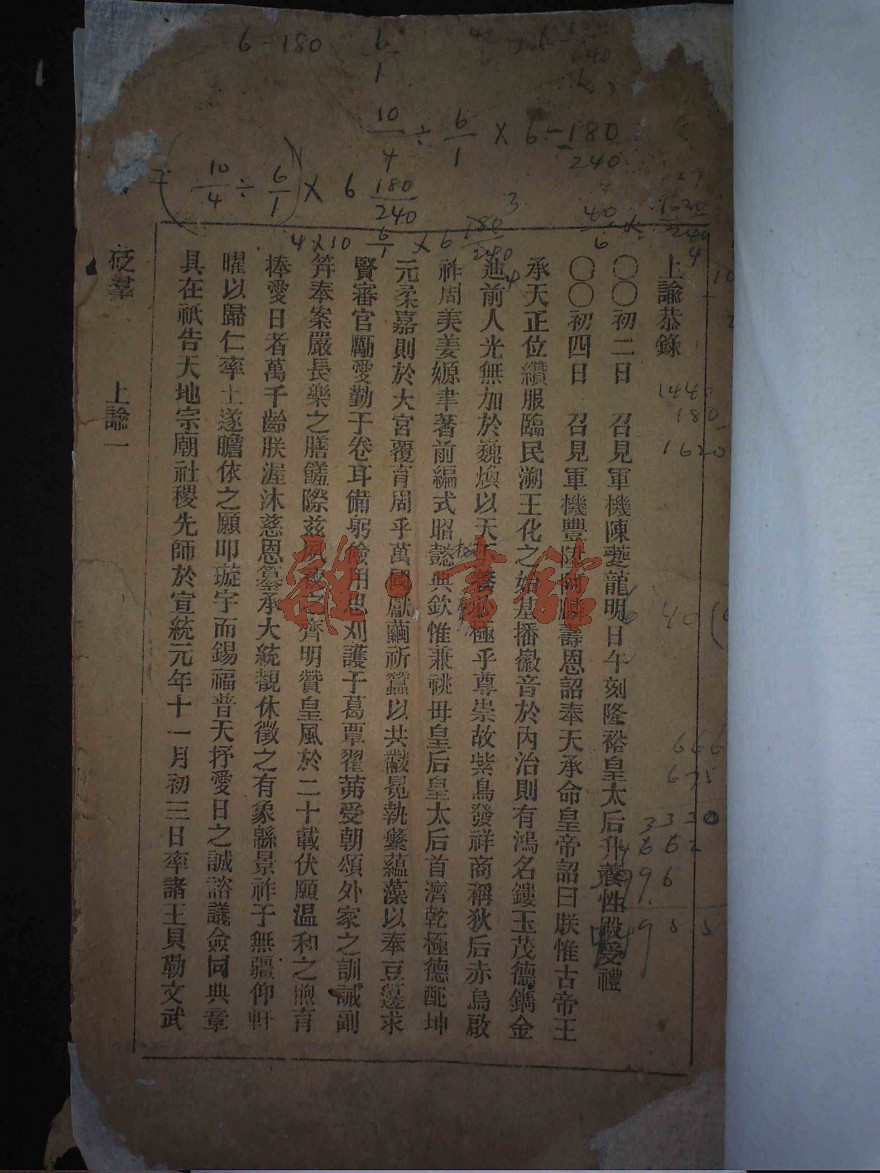 上諭恭錄
〇〇初二日　召見軍機陳夔龍明日午刻隆裕皇太后升養性殿受禮
〇〇初四日　召見軍機豐阿麟壽恩詔奉天承命皇帝詔曰朕惟古帝王
承天正位纘服臨民溯王化之始基播徽音於內治則有鴻名鏤玉茂德鐫金
前人光無加於巍煥以天下養必極乎尊崇故紫鳥發祥商稱狄后赤烏啟
祚周美姜嫄聿著前編式昭懿典欽惟兼祧母皇后皇太后首濟乾極德配坤
元柔嘉則於大宮覆育周乎萬國獻繭祈蠶以共黻冕執蘩蘊藻以奉豆籩求
賢審官勵愛勤于卷耳備躬儉用思刈護于葛覃翟茀受朝頌外家之訓誡副
笄奉案嚴長樂之膳饈際茲夙夜之齊明贊皇風於二十載伏願溫和之煦育
捧愛日者萬千齡朕渥沐慈恩纂承大統覩休徵之有象緜景祚于無疆仰軒
曜以歸仁率土遂瞻依之願叩璇宇而錫福普天抒愛日之誠諮議僉同典章
具在祇告天地宗廟社稷先師於宣統元年十一月初三日率諸王貝勒文武
砭羣　上諭一
6-180
6/1
10/4 ÷ 6/1 × 6-180/240
(10/4 ÷ 6/1) × 6 180/240
4×10 6/1 × 6 180/240
1440
180
1620
雜·書館